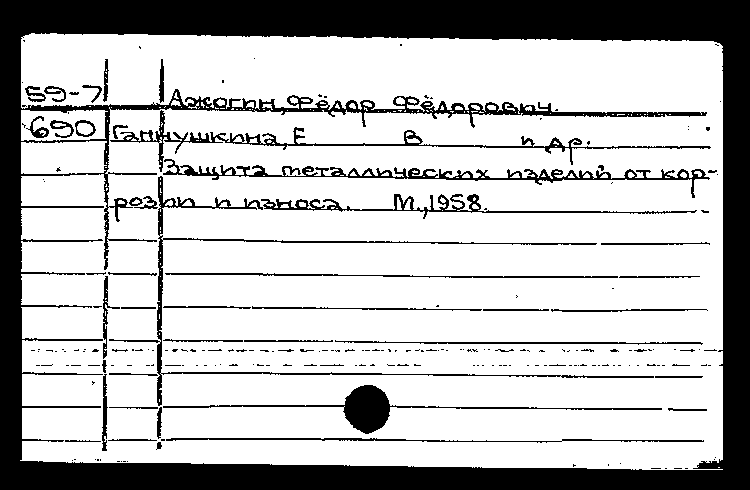 59-7 Ажогин, Фёдор Фёдорович.
690 Ганнушкина, Е В и др.
Защита металлических изделий от кор-
розии и износа. М., 1958.